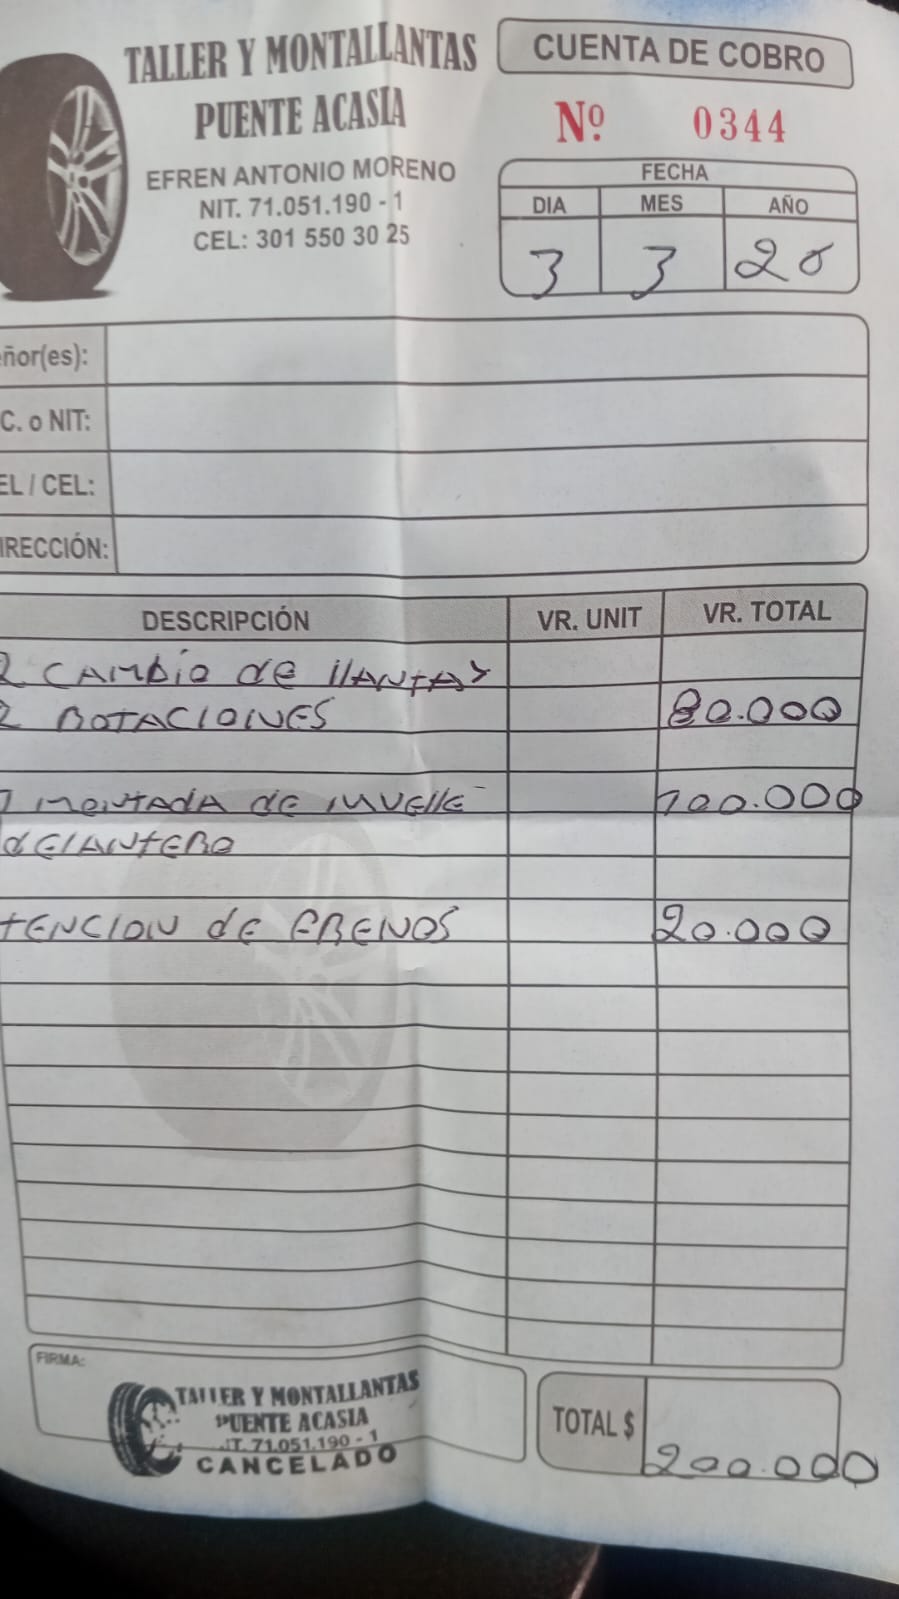 TALLER Y MONTALLANTAS
PUENTE ACASIA
EFREN ANTONIO MORENO
NIT. 71.051.190 - 1
CEL: 301 550 30 25
CUENTA DE COBRO
Nº 0344
FECHA
DIA MES AÑO
3 3 26
ñor(es):
C. o NIT:
EL / CEL:
IRECCIÓN:
DESCRIPCIÓN VR. UNIT VR. TOTAL
2 CAMBIO de llANTAS
2 ROTACIONES 80.000
1 MONTADA de MUEllE 100.000
dElANtERO
tENCION de FRENOS 20.000
FIRMA:
TALLER Y MONTALLANTAS
PUENTE ACASIA
IT. 71.051.190 - 1
CANCELADO
TOTAL $ 200.000